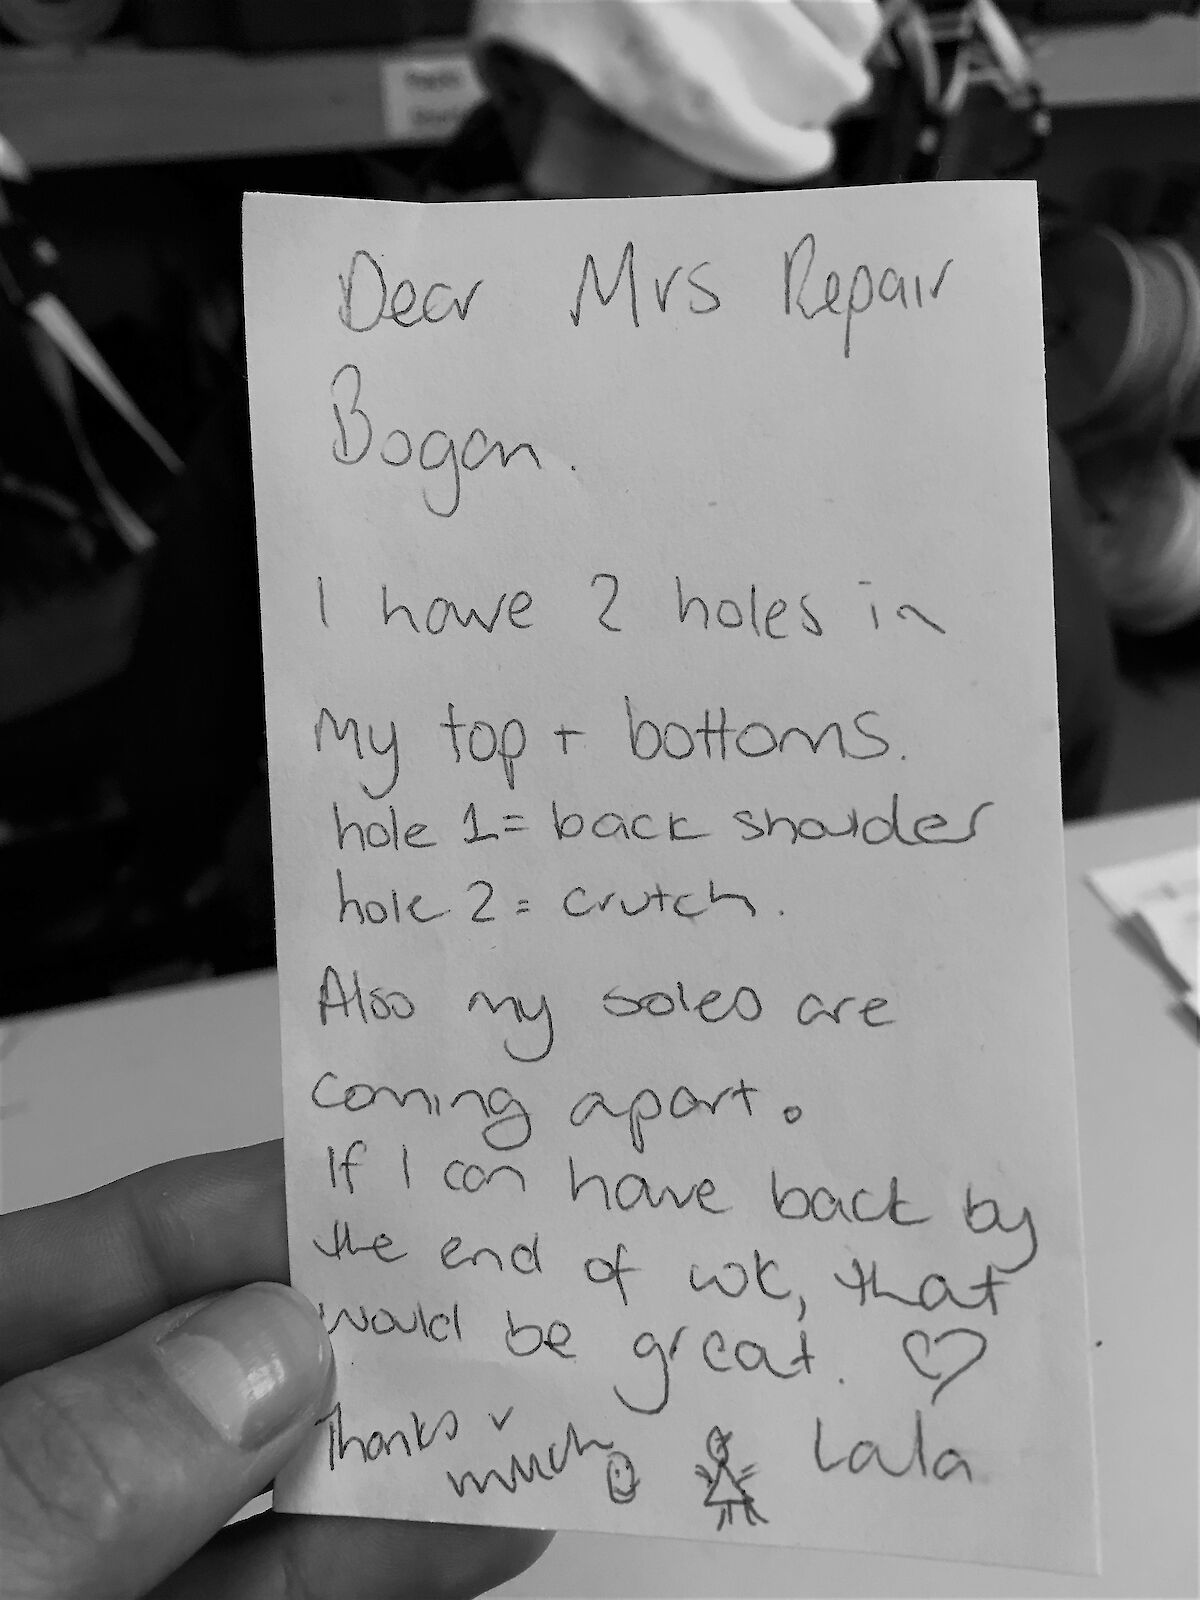 Dear Mrs Repair
Bogan.
I have 2 holes in
My top + bottoms.
hole 1 = back shoulder
hole 2 = crutch.
Also my soles are
coming apart.
If I can have back by
the end of wk, that
would be great. ♡
Thanks v
much
Lala